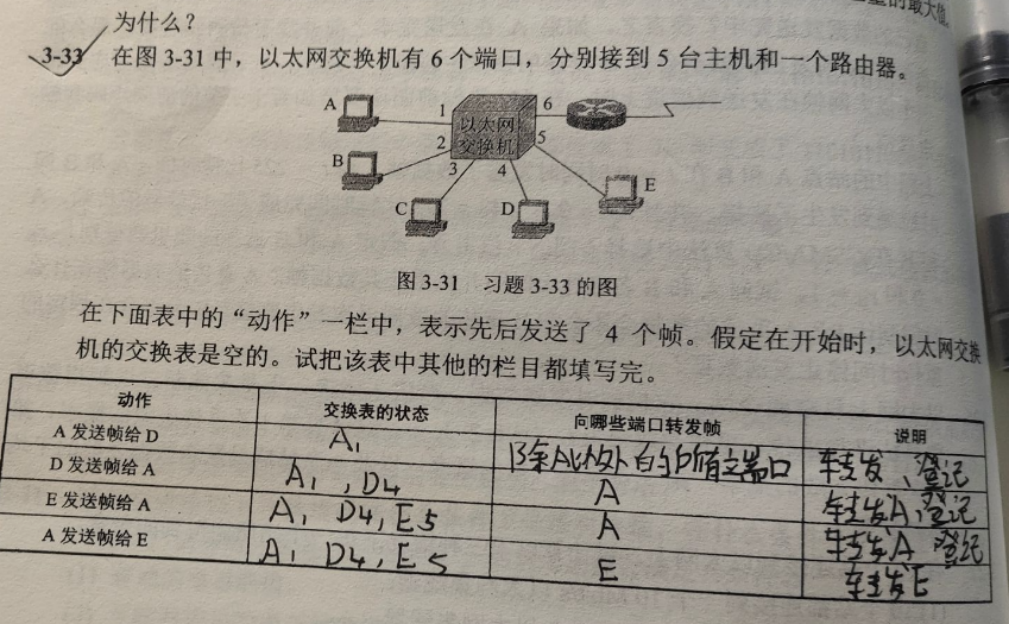 的最大值。
为什么？
3-33 在图 3-31 中，以太网交换机有 6 个端口，分别接到 5 台主机和一个路由器。
A
1
6
以太网
交换机
2
5
B
3
4
E
C
D
图 3-31 习题 3-33 的图
在下面表中的“动作”一栏中，表示先后发送了 4 个帧。假定在开始时，以太网交换
机的交换表是空的。试把该表中其他的栏目都填写完。
动作 交换表的状态 向哪些端口转发帧 说明
A 发送帧给 D A1 除A以外的所有端口 转发、登记
D 发送帧给 A A1，D4 A 转发A，登记
E 发送帧给 A A1 D4，E5 A 转发A 登记
A 发送帧给 E A1 D4，E5 E 转发E